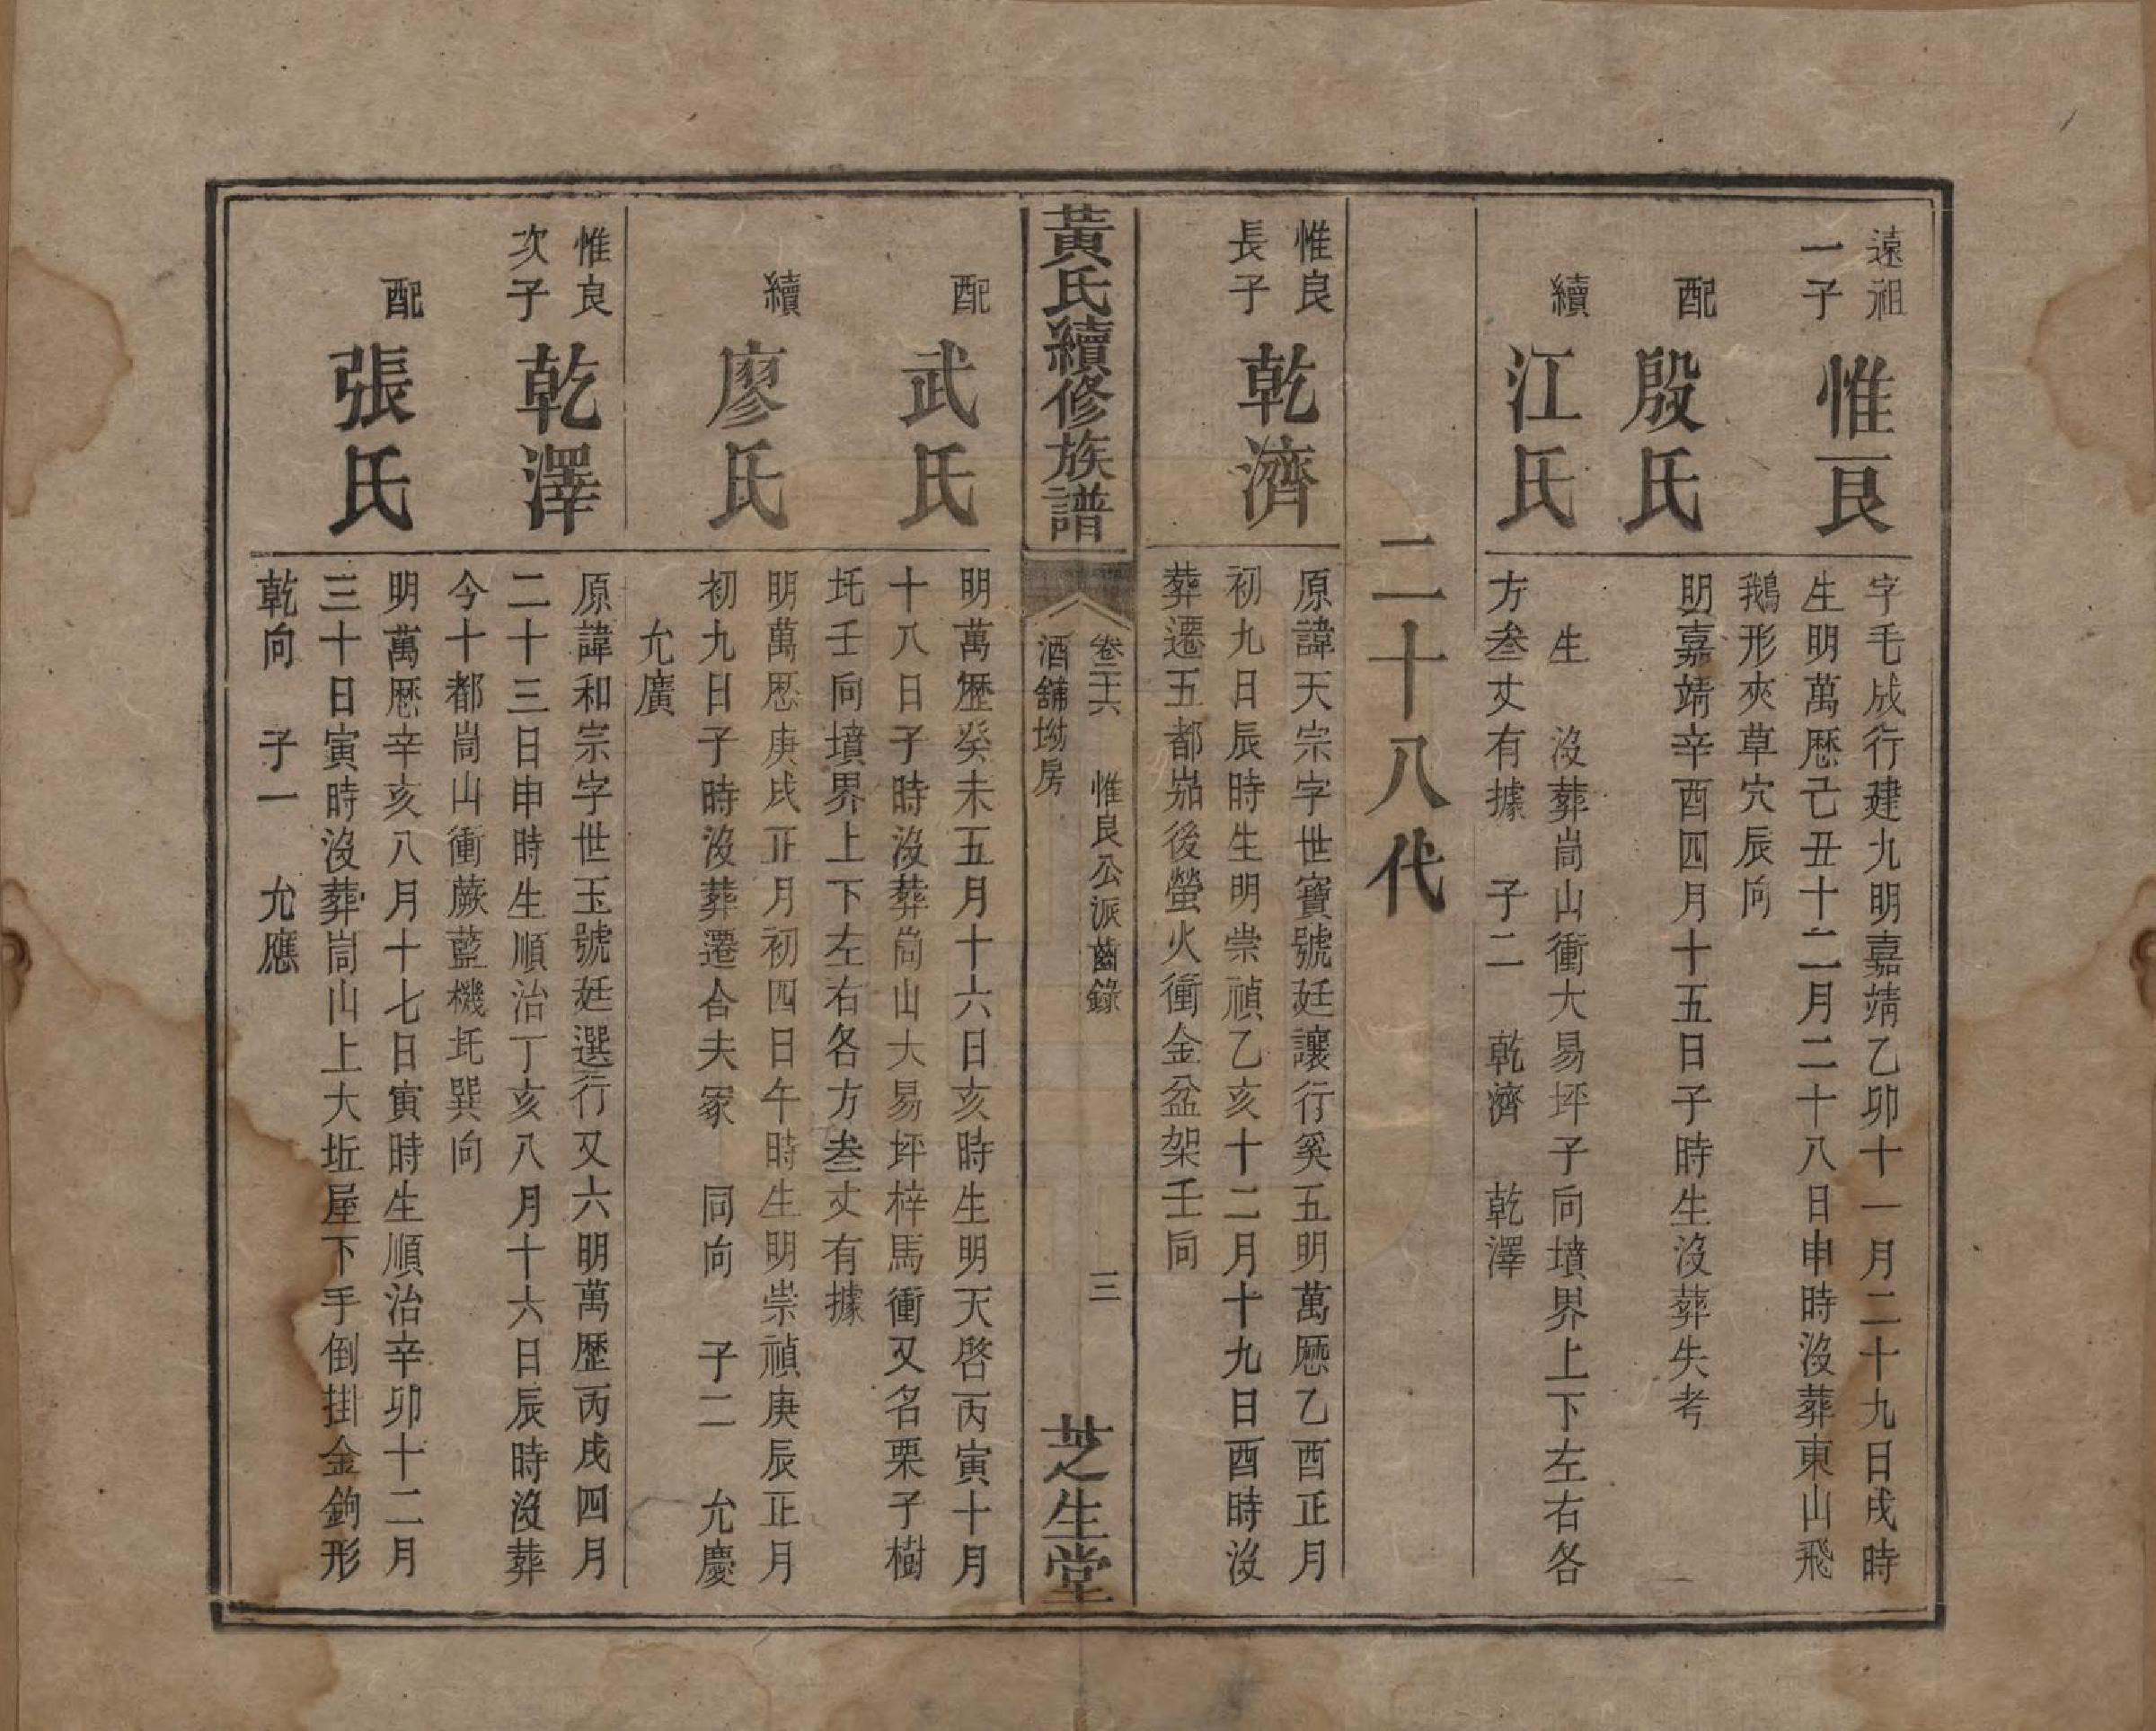 遠祖
一子
惟良
字毛成行建九明嘉靖乙卯十一月二十九日戌時
生明萬歷己丑十二月二十八日申時沒葬東山飛
鵝形夾草穴辰向
配
殷氏
明嘉靖辛酉四月十五日子時生沒葬失考
續
江氏
生　沒葬崗山衝大易坪子向墳界上下左右各
方叁丈有據　子二　乾濟　乾澤
二十八代
惟良
長子
乾濟
原諱天宗字世寶號廷讓行奚五明萬歷乙酉正月
初九日辰時生明崇禎乙亥十二月十九日酉時沒
葬遷五都峁後螢火衝金盆架壬向
黃氏續修族譜
卷三六　惟良公派齒錄　三
酒舖坳房
芝生堂
配
武氏
明萬歷癸未五月十六日亥時生明天啓丙寅十月
十八日子時沒葬崗山大易坪梓馬衝又名栗子樹
圫壬向墳界上下左右各方叁丈有據
續
廖氏
明萬歷庚戌正月初四日午時生明崇禎庚辰正月
初九日子時沒葬遷合夫冢　同向　子二　允慶
允廣
惟良
次子
乾澤
原諱和宗字世玉號廷選行又六明萬歷丙戌四月
二十三日申時生順治丁亥八月十六日辰時沒葬
今十都崗山衝蕨藍機圫巽向
配
張氏
明萬歷辛亥八月十七日寅時生順治辛卯十二月
三十日寅時沒葬崗山上大坵屋下手倒掛金鉤形
乾向　子一　允應